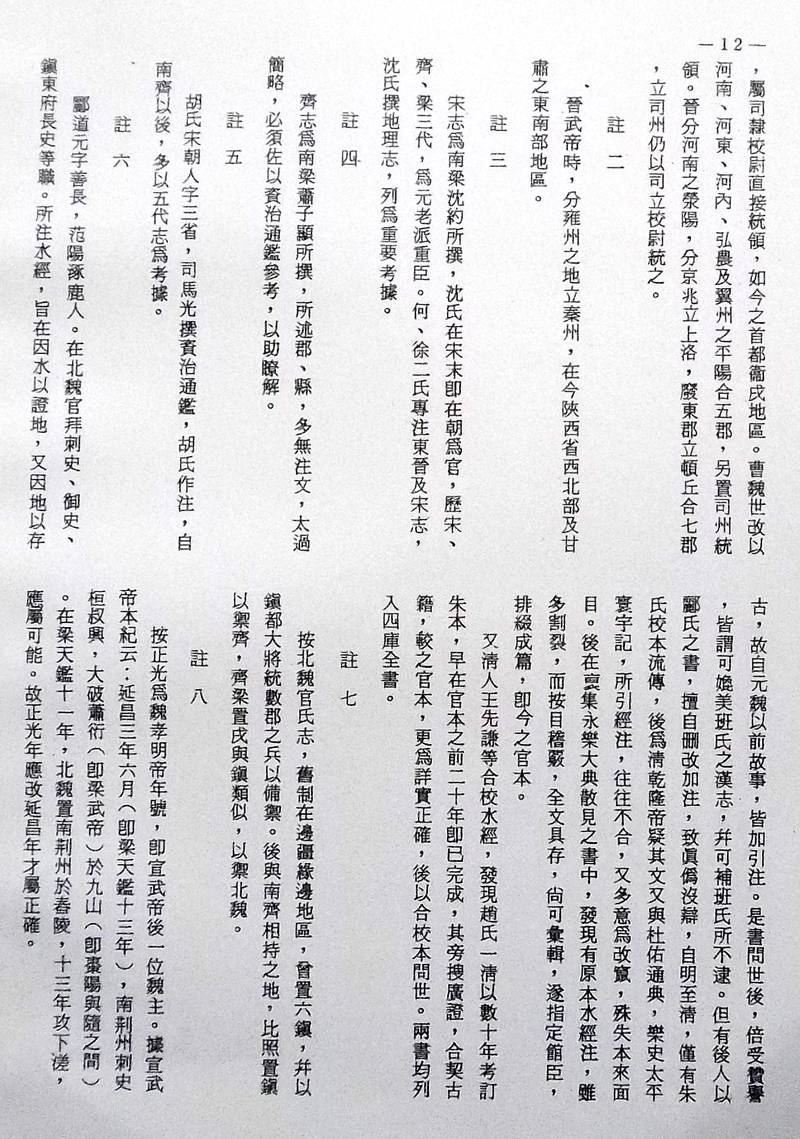 —12—
，屬司隸校尉直接統領，如今之首都衞戍地區。曹魏世改以
河南、河東、河內、弘農及翼州之平陽合五郡，另置司州統
領。晉分河南之滎陽，分京兆立上洛，廢東郡立頓丘合七郡
，立司州仍以司立校尉統之。
註 二
晉武帝時，分雍州之地立秦州，在今陝西省西北部及甘
肅之東南部地區。
註 三
宋志爲南梁沈約所撰，沈氏在宋末卽在朝爲官，歷宋、
齊、梁三代，爲元老派重臣。何、徐二氏專注東晉及宋志，
沈氏撰地理志，列爲重要考據。
註 四
齊志爲南梁蕭子顯所撰，所述郡、縣，多無注文，太過
簡略，必須佐以資治通鑑參考，以助瞭解。
註 五
胡氏宋朝人字三省，司馬光撰資治通鑑，胡氏作注，自
南齊以後，多以五代志爲考據。
註 六
酈道元字善長，范陽涿鹿人。在北魏官拜刺史、御史、
鎭東府長史等職。所注水經，旨在因水以證地，又因地以存
古，故自元魏以前故事，皆加引注。是書問世後，倍受贊譽
，皆謂可媲美班氏之漢志，幷可補班氏所不逮。但有後人以
酈氏之書，擅自刪改加注，致眞僞沒辯，自明至淸，僅有朱
氏校本流傳，後爲淸乾隆帝疑其文又與杜佑通典，樂史太平
寰宇記，所引經注，往往不合，又多意爲改竄，殊失本來面
目。後在裒集永樂大典散見之書中，發現有原本水經注，雖
多割裂，而按目稽覈，全文具存，尙可彙輯，遂指定館臣，
排綴成篇，卽今之官本。
又淸人王先謙等合校水經，發現趙氏一淸以數十年考訂
朱本，早在官本之前二十年卽已完成，其旁搜廣證，合契古
籍，較之官本，更爲詳實正確，後以合校本問世。兩書均列
入四庫全書。
註 七
按北魏官氏志，舊制在邊疆緣邊地區，曾置六鎭，幷以
鎭都大將統數郡之兵以備禦。後與南齊相持之地，比照置鎭
以禦齊，齊梁置戍與鎭類似，以禦北魏。
註 八
按正光爲魏孝明帝年號，卽宣武帝後一位魏主。據宣武
帝本紀云：延昌三年六月（卽梁天鑑十三年），南荆州刺史
桓叔興，大破蕭衍（卽梁武帝）於九山（卽棗陽與隨之間）
。在梁天鑑十一年，北魏置南荆州於舂陵，十三年攻下溠，
應屬可能。故正光年應改延昌年才屬正確。